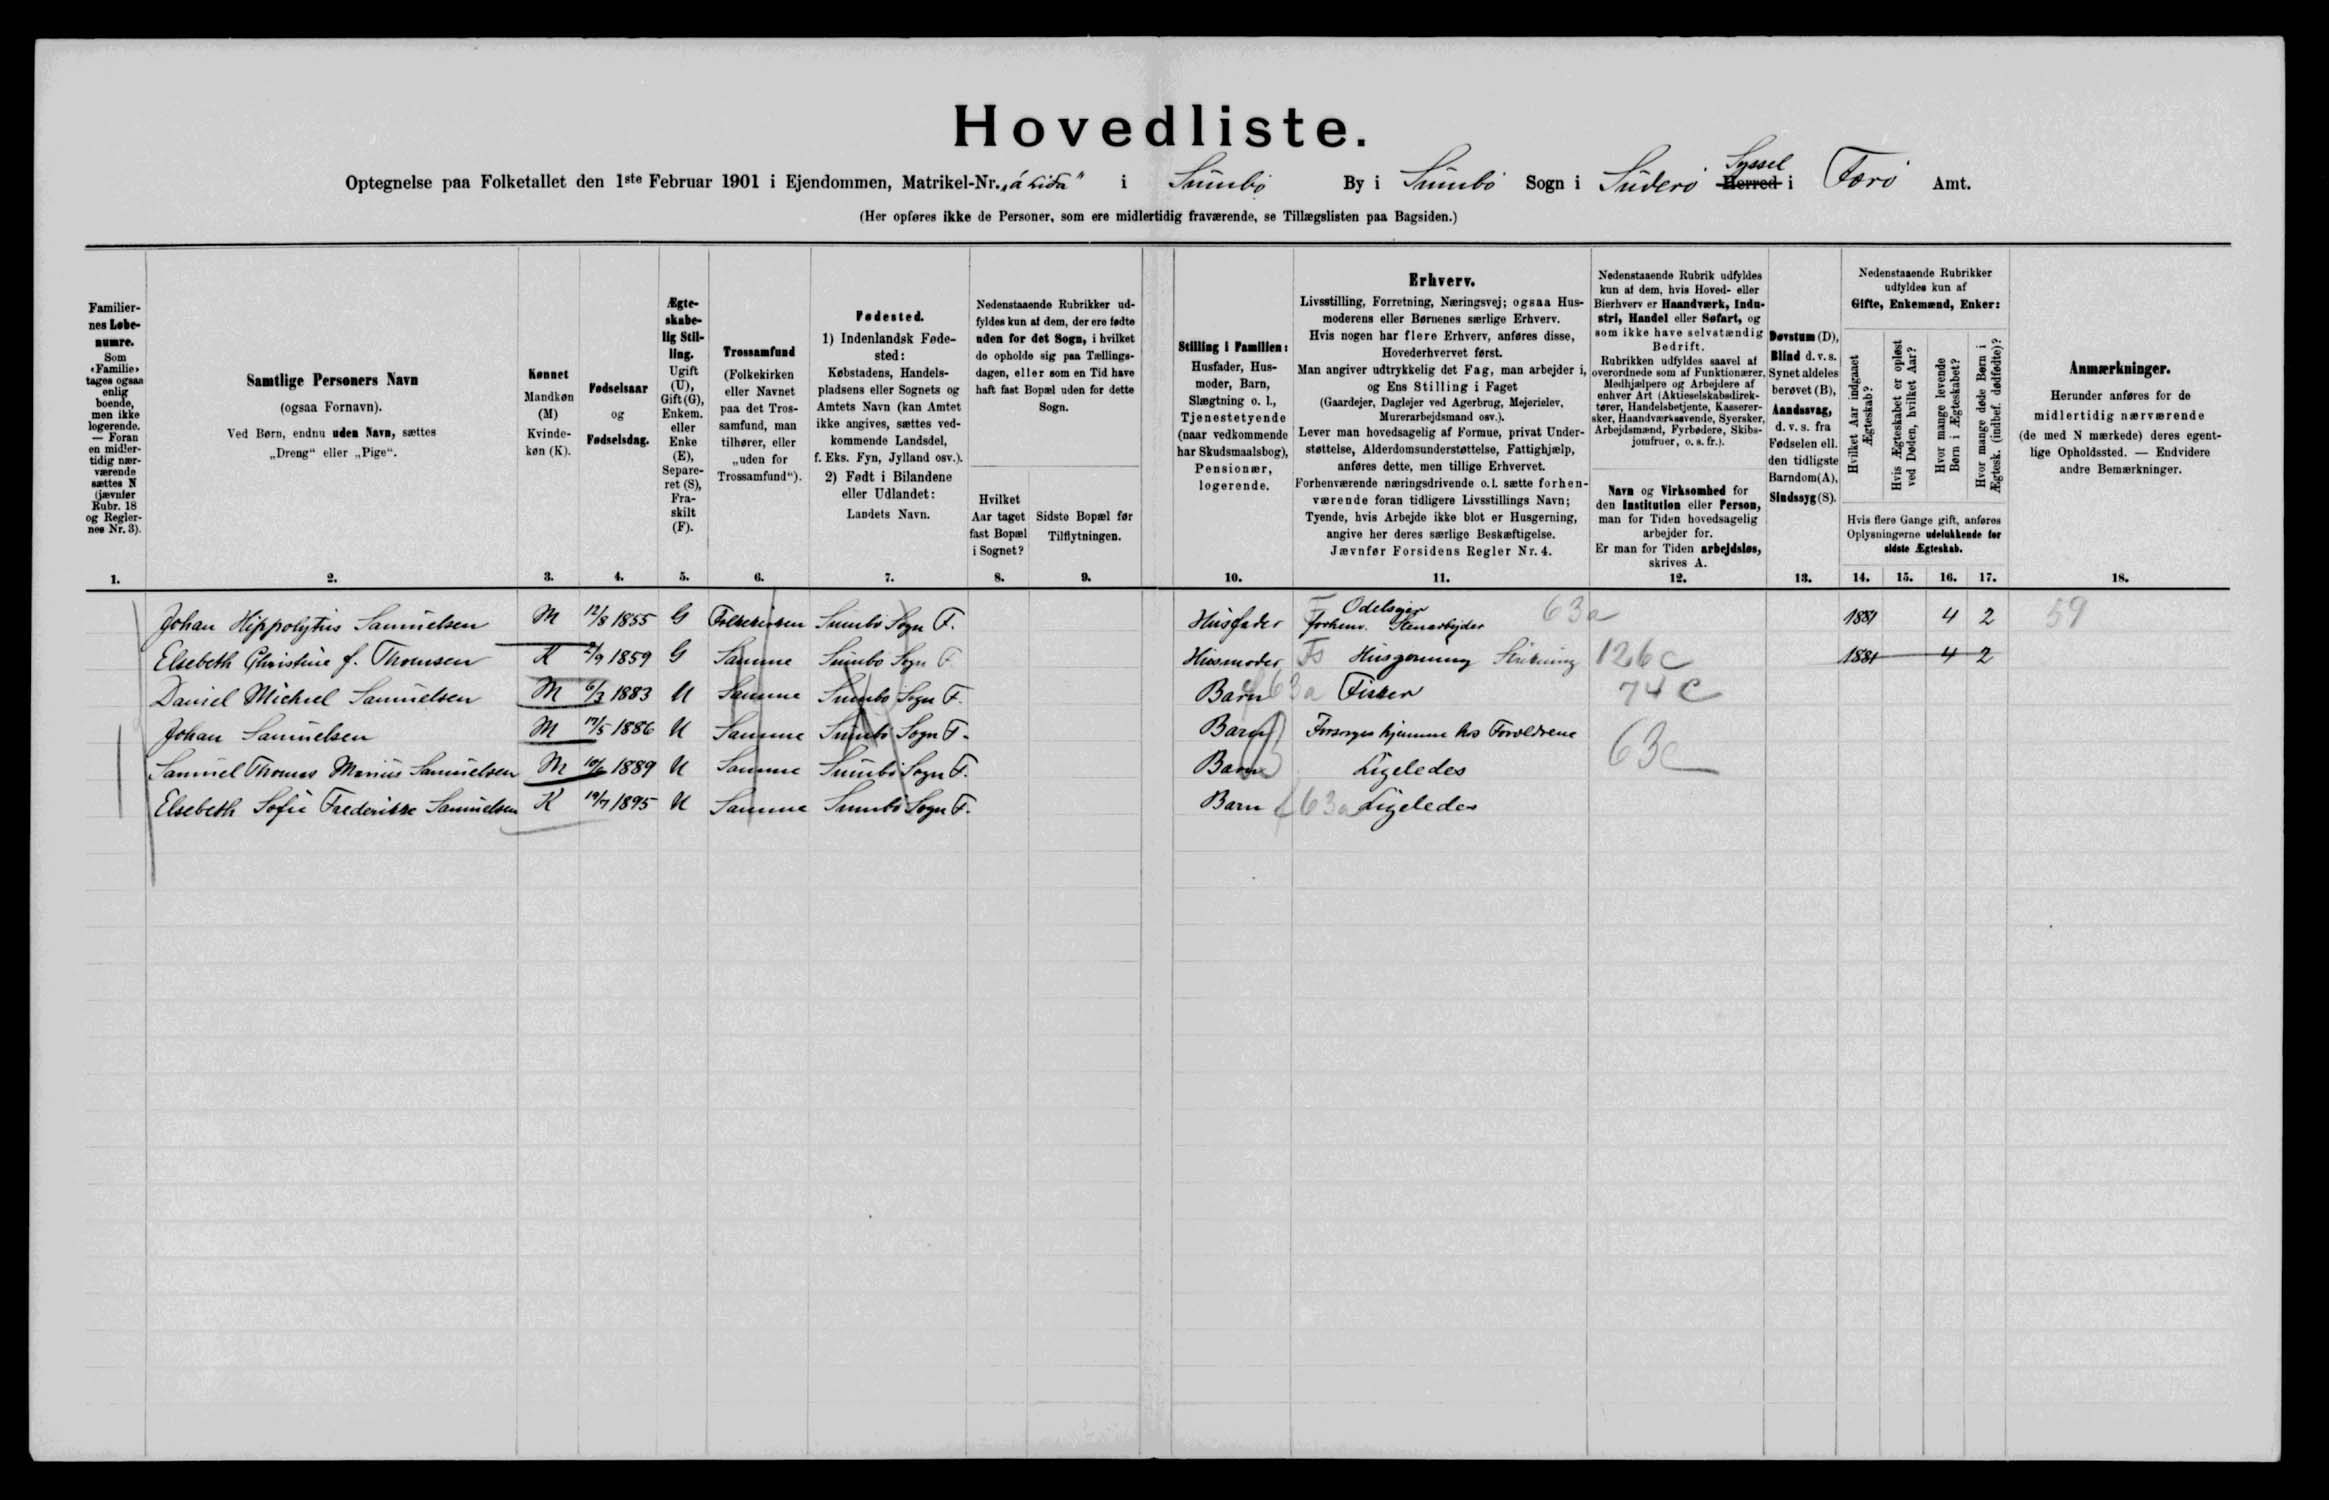 Hovedliste.
Optegnelse paa Folketallet den 1ste Februar 1901 i Ejendommen, Matrikel-Nr. „á Lida“ i Sumbö By i Sumbö Sogn i Suderö Herred Syssel i Færö Amt.
(Her opføres ikke de Personer, som ere midlertidig fraværende, se Tillægslisten paa Bagsiden.)
Familier-
nes Løbe-
numre.
Som
«Familie»
tages ogsaa
enlig
boende,
men ikke
logerende.
— Foran
en midler-
tidig nær-
værende
sættes N
(jævnfør
Rubr. 18
og Regler-
nes Nr. 3).
1.
Samtlige Personers Navn
(ogsaa Fornavn).
Ved Børn, endnu uden Navn, sættes
„Dreng“ eller „Pige“.
2.
Kønnet
Mandkøn
(M)
Kvinde-
køn (K).
3.
Fødselsaar
og
Fødselsdag.
4.
Ægte-
skabe-
lig Stil-
ling.
Ugift
(U),
Gift (G),
Enkem.
eller
Enke
(E),
Separe-
ret (S),
Fra-
skilt
(F).
5.
Trossamfund
(Folkekirken
eller Navnet
paa det Tros-
samfund, man
tilhører, eller
„uden for
Trossamfund“).
6.
Fødested.
1) IndenlandskFøde-
sted:
Købstadens, Handels-
pladsens eller Sognets og
Amtets Navn (kan Amtet
ikke angives, sættes ved-
kommende Landsdel,
f. Eks. Fyn, Jylland osv.).
2) Født i Bilandene
eller Udlandet:
Landets Navn.
7.
Nedenstaaende Rubrikker ud-
fyldes kun af dem, der ere fødte
uden for det Sogn, i hvilket
de opholde sig paa Tællings-
dagen, eller som en Tid have
haft fast Bopæl uden for dette
Sogn.
Hvilket
Aar taget
fast Bopæl
i Sognet?
8.
Sidste Bopæl før
Tilflytningen.
9.
Stilling i Familien:
Husfader, Hus-
moder, Barn,
Slægtning o. l.,
Tjenestetyende
(naar vedkommende
har Skudsmaalsbog),
Pensionær,
logerende.
10.
Erhverv.
Livsstilling, Forretning, Næringsvej; ogsaa Hus-
moderens eller Børnenes særlige Erhverv.
Hvis nogen har flere Erhverv, anføres disse,
Hovederhvervet først.
Man angiver udtrykkelig det Fag, man arbejder i,
og Ens Stilling i Faget
(Gaardejer, Daglejer ved Agerbrug, Mejerielev,
Murerarbejdsmand osv.).
Lever man hovedsagelig af Formue, privat Under-
støttelse, Alderdomsunderstøttelse, Fattighjælp,
anføres dette, men tillige Erhvervet.
Forhenværende næringsdrivende o. l. sætte forhen-
værende foran tidligere Livsstillings Navn;
Tyende, hvis Arbejde ikke blot er Husgerning,
angive her deres særlige Beskæftigelse.
Jævnfør Forsidens Regler Nr. 4.
11.
Nedenstaaende Rubrik udfyldes
kun af dem, hvis Hoved- eller
Bierhverv er Haandværk, Indu-
stri, Handel eller Søfart, og
som ikke have selvstændig
Bedrift.
Rubrikken udfyldes saavel af
overordnede som af Funktionærer,
Medhjælpere og Arbejdere af
enhver Art (Aktieselskabsdirek-
tører, Handelsbetjente, Kasserer-
sker, Haandværkssvende, Syersker,
Arbejdsmænd, Fyrbødere, Skibs-
jomfruer, o. s. fr.).
Navn og Virksomhed for
den Institution eller Person,
man for Tiden hovedsagelig
arbejder for.
Er man for Tiden arbejdsløs,
skrives A.
12.
Døvstum (D),
Blind d. v. s.
Synet aldeles
berøvet (B),
Aandssvag,
d. v. s. fra
Fødselen ell.
den tidligste
Barndom (A),
Sindssyg (S).
13.
Nedenstaaende Rubrikker
udfyldes kun af
Gifte, Enkemænd, Enker:
Hvilket Aar indgaaet
Ægteskab?
Hvis Ægteskabet er opløst
ved Døden, hvilket Aar?
Hvor mange levende
Børn i Ægteskabet?
Hvor mange døde Børn i
Ægtesk. (indbef. dødfødte)?
Hvis flere Gange gift, anføres
Oplysningerne udelukkende for
sidste Ægteskab.
14. 15. 16. 17.
Anmærkninger.
Herunder anføres for de
midlertidig nærværende
(de med N mærkede) deres egent-
lige Opholdssted. — Endvidere
andre Bemærkninger.
18.
Johan Hippolytus Samuelsen M 12/8 1855 G Folkekirken Sumbö Sogn F. Husfader F Odelsejer forhenv. Stenarbejder 63a 1881 4 2 59
Elsebeth Christine f. Thomsen K 2/9 1859 G Samme Sumbö Sogn F. Husmoder Fs Husgerning Strikning 126c 1881 4 2
Daniel Michael Samuelsen M 6/3 1883 U Samme Sumbö Sogn F. Barn 63a Fisker 74 c
Johan Samuelsen M 17/5 1886 U Samme Sumbö Sogn F. Barn Forsørges hjemme hos Forældrene 63c
Samuel Thomas Marius Samuelsen M 10/6 1889 U Samme Sumbö Sogn F. Barn Ligeledes
Elsebeth Sofie Frederikke Samuelsen K 19/7 1895 U Samme Sumbö Sogn F. Barn f 63a Ligeledes